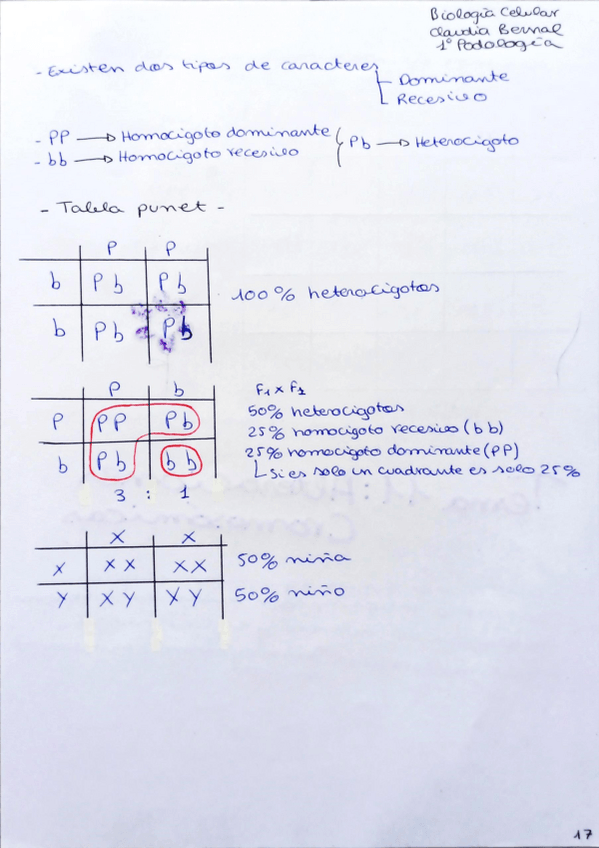 Biología Celular
Claudia Bernal
1º Podología
- Existen dos tipos de caracteres
Dominante
Recesivo
- PP → Homocigoto dominante
- bb → Homocigoto recesivo
Pb → Heterocigoto
- Tabla punet -
P P
b Pb Pb
b Pb Pb
100% heterocigotos
P b
P PP Pb
b Pb bb
3 : 1
F1 x F1
50% heterocigotos
25% homocigoto recesivo (bb)
25% homocigoto dominante (PP)
Si es solo un cuadrante es solo 25%
X X
X XX XX 50% niña
Y XY XY 50% niño
17